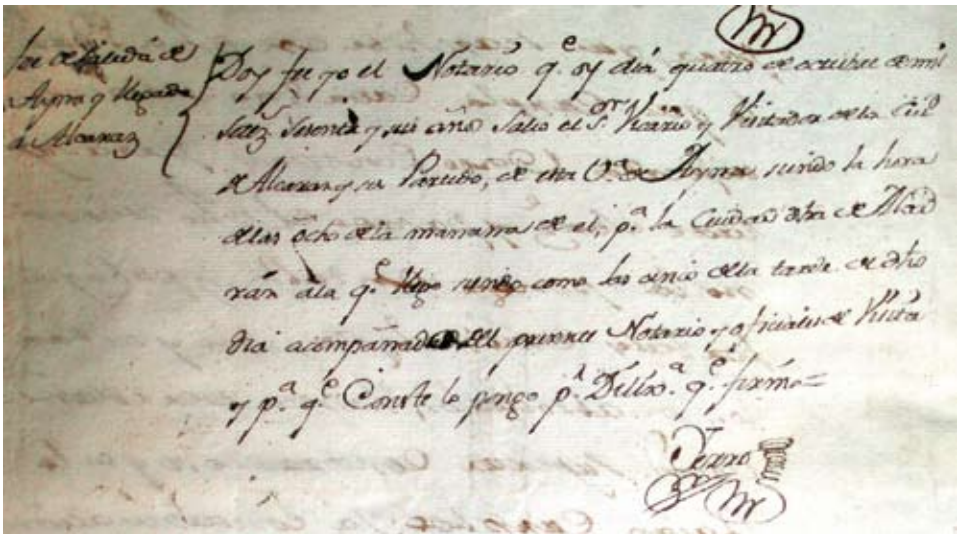 fee de salida de
Ayna y llegada
a Alcaraz
Doy fee yo el Notario q.e oy dia quatro de octubre de mil
setez.s setenta y seis años salio el S.r Vicario y Visitador de la Ciu.d
de Alcaraz y su Partido, de esta V.a de Ayna, siendo la hora
de las ocho de la mañana de el, p.a la Ciudad dha de
a la q.e llego siendo como las cinco de la tarde de dho
dia acompañado del presente Notario y oficiales de Visita
y p.a q.e Conste lo pongo p.r Dilix.a q.e firmo =